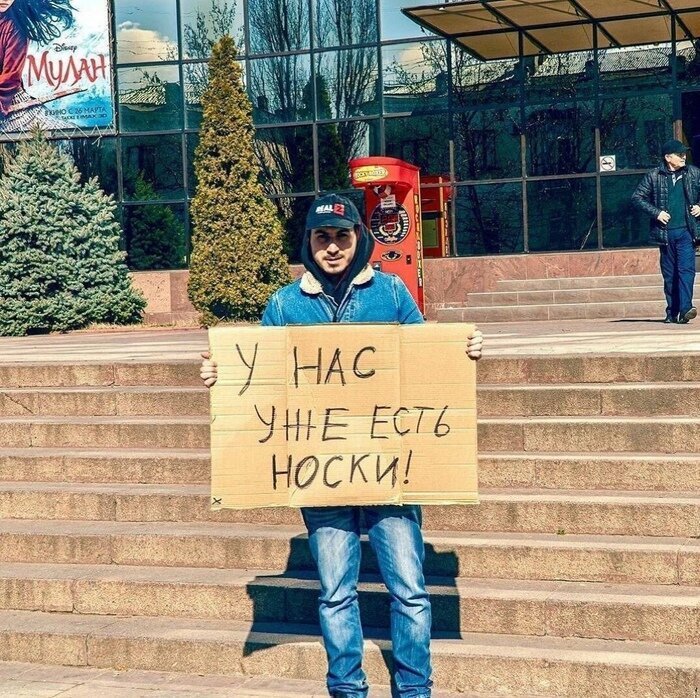 Disney
МУЛАН
В КИНО С 26 МАРТА
REAL
У НАС
УЖЕ ЕСТЬ
НОСКИ!